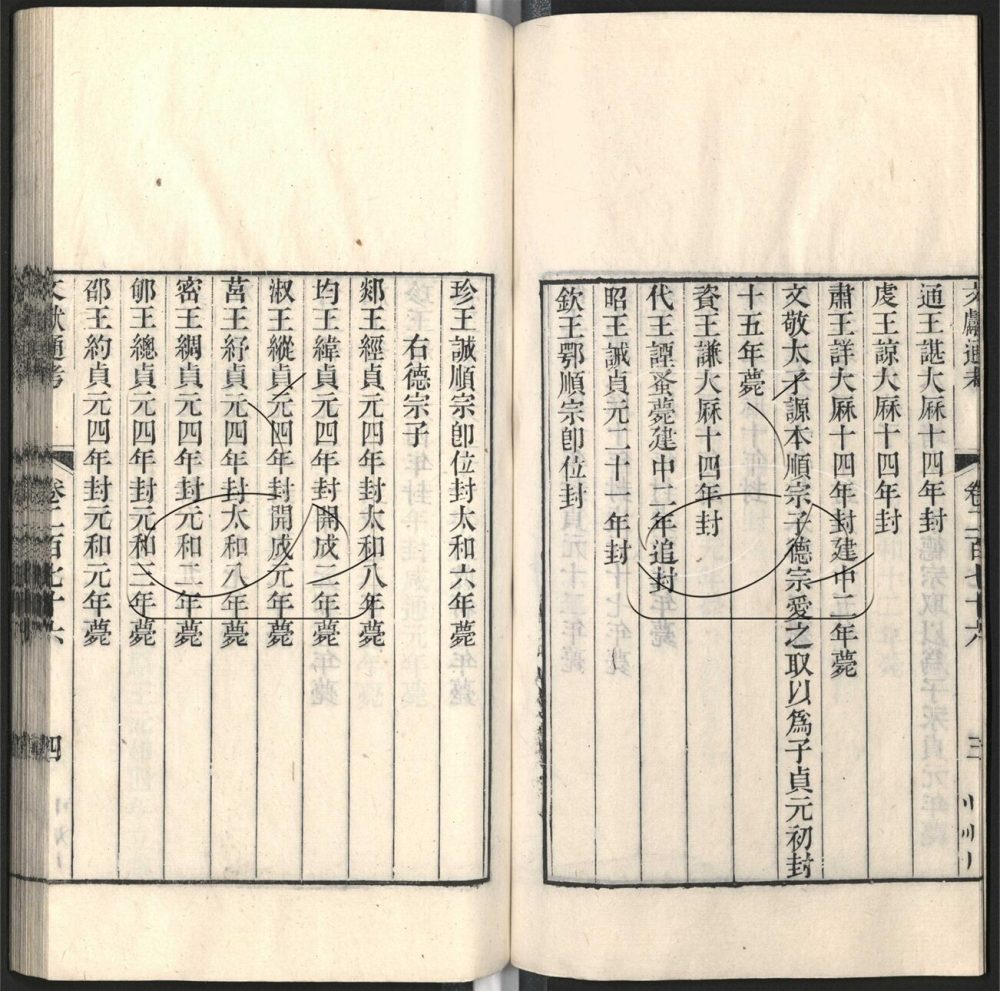 文獻通考 卷二百七十六 三
通王諶大厤十四年封
虔王諒大厤十四年封
肅王詳大厤十四年封建中五年薨
文敬太子謜本順宗子德宗愛之取以爲子貞元初封
十五年薨
資王謙大厤十四年封
代王諲蚤薨建中二年追封
昭王誡貞元二十一年封
欽王鄂順宗卽位封
珍王誠順宗卽位封太和六年薨
右德宗子
郯王經貞元四年封太和八年薨
均王緯貞元四年封開成三年薨
淑王縱貞元四年封開成元年薨
莒王紓貞元四年封太和八年薨
密王綢貞元四年封元和二年薨
郇王總貞元四年封元和三年薨
邵王約貞元四年封元和元年薨
文獻通考 卷二百七十六 四